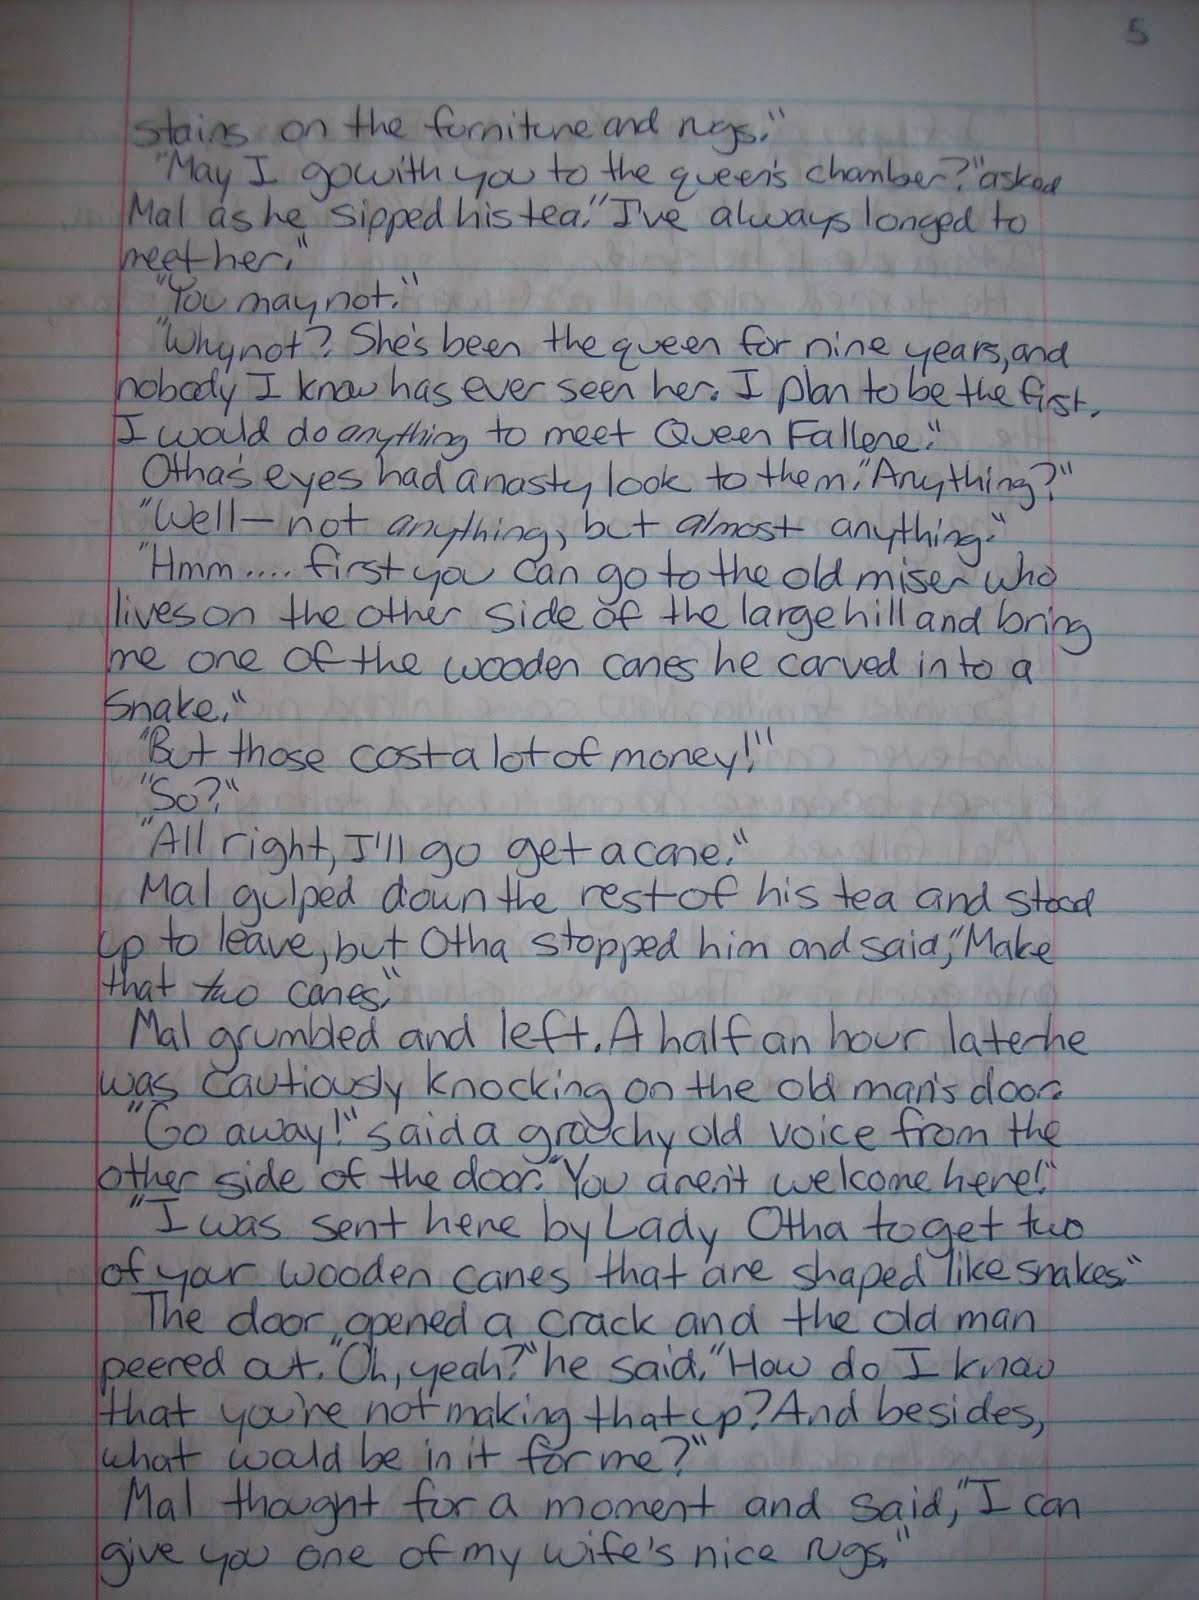 5
stains on the furniture and rugs."
"May I go with you to the queen's chamber?" asked
Mal as he sipped his tea. "I've always longed to
meet her."
"You may not."
"Why not? She's been the queen for nine years, and
nobody I know has ever seen her. I plan to be the first.
I would do anything to meet Queen Fallene."
Otha's eyes had a nasty look to them. "Anything?"
"Well — not anything, but almost anything."
"Hmm.... first you can go to the old miser who
lives on the other side of the large hill and bring
me one of the wooden canes he carved in to a
snake."
"But those cost a lot of money!"
"So?"
"All right, I'll go get a cane."
Mal gulped down the rest of his tea and stood
up to leave, but Otha stopped him and said, "Make
that two canes."
Mal grumbled and left. A half an hour later he
was cautiously knocking on the old man's door.
"Go away!" said a grouchy old voice from the
other side of the door. "You aren't welcome here!"
"I was sent here by Lady Otha to get two
of your wooden canes that are shaped like snakes."
The door opened a crack and the old man
peered out. "Oh, yeah?" he said. "How do I know
that you're not making that up? And besides,
what would be in it for me?"
Mal thought for a moment and said, "I can
give you one of my wife's nice rugs."